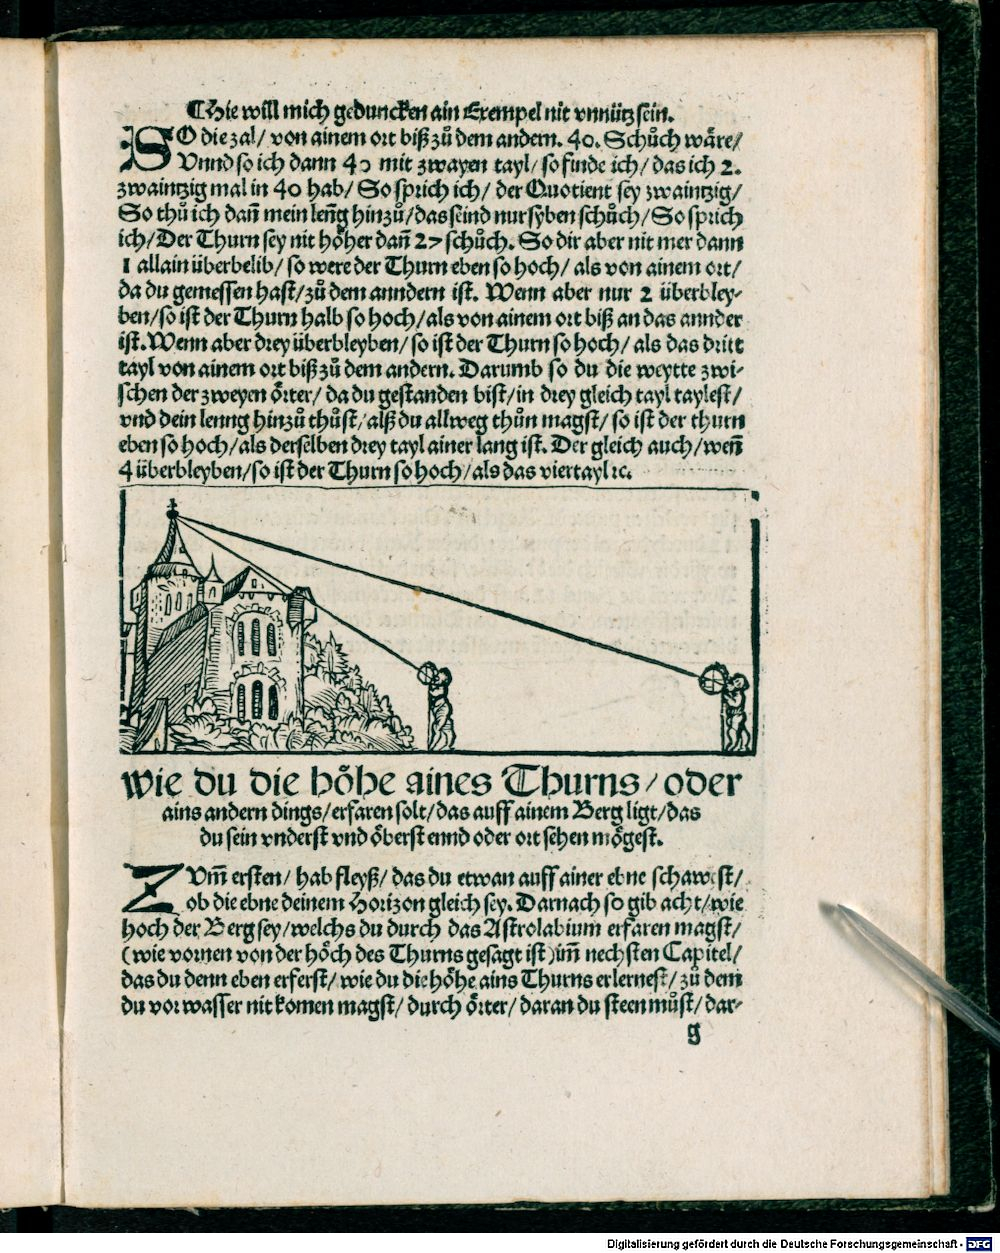 Hie will mich geduncken ain Exempel nit vnnütz sein.
SO die zal/ von ainem ort biß zů dem andern. 40. Schůch wäre/
Vnnd so ich dann 40 mit zwayen tayl/ so finde ich/ das ich 2.
zwaintzig mal in 40 hab/ So sprich ich/ der Quotient sey zwaintzig/
So thů ich dañ mein leñg hinzů/ das seind nur syben schůch/ So sprich
ich/ Der Thurn sey nit höher dañ 27 schůch. So dir aber nit mer dann
1 allain überbelib/ so were der Thurn eben so hoch/ als von ainem ort/
da du gemessen hast/ zů dem anndern ist. Wenn aber nur 2 überbley-
ben/ so ist der Thurn halb so hoch/ als von ainem ort biß an das annder
ist. Wenn aber drey überbleyben/ so ist der Thurn so hoch/ als das dritt
tayl von ainem ort biß zů dem andern. Darumb so du die weytte zwi-
schen der zweyen örter/ da du gestanden bist/ in drey gleich tayl taylest/
vnd dein lenng hinzů thůst/ alß du allweg thůn magst/ so ist der thurn
eben so hoch/ als derselben drey tayl ainer lang ist. Der gleich auch/ weñ
4 überbleyben/ so ist der Thurn so hoch/ als das viertayl ꝛc.
wie du die höhe aines Thurns/ oder
ains andern dings/ erfaren solt/ das auff ainem Berg ligt/ das
du sein vnderst vnd öberst ennd oder ort sehen mögest.
ZVm̃ ersten/ hab fleyß/ das du etwan auff ainer ebne schawest/
ob die ebne deinem Horizon gleich sey. Darnach so gib acht/ wie
hoch der Berg sey/ welchs du durch das Astrolabium erfaren magst/
(wie vornen von der höch des Thurns gesagt ist) im̃ nechsten Capitel/
das du denn eben erferst/ wie du die höhe ains Thurns erlernest/ zů dem
du vor wasser nit komen magst/ durch örter/ daran du steen můst/ dar-
g
Digitalisierung gefördert durch die Deutsche Forschungsgemeinschaft - DFG